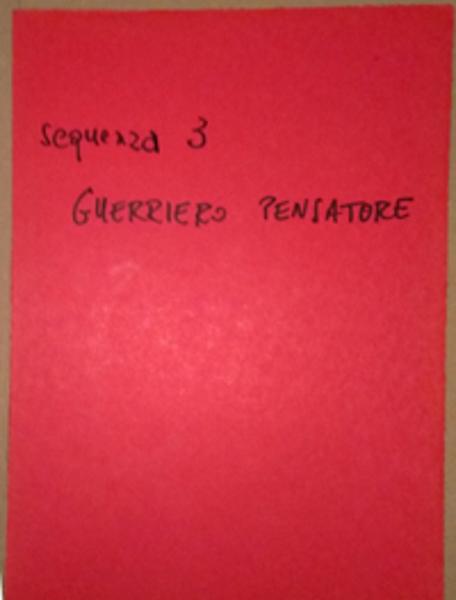 sequenza 3
GUERRIERO PENSATORE